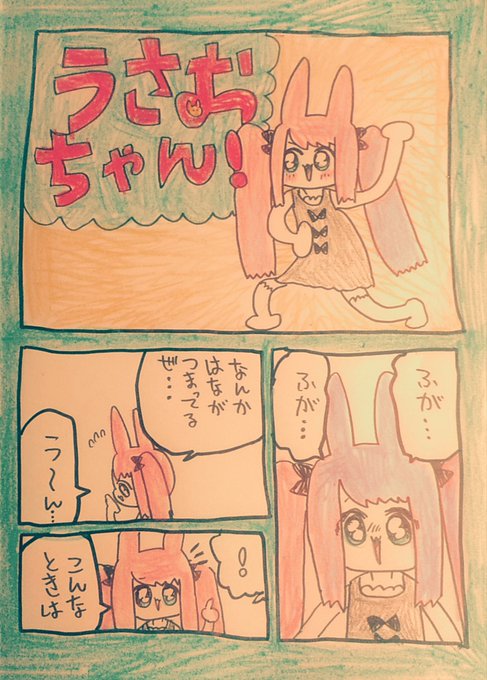 うさお
ちゃん!
ふが…
ふが…
なんか
はなが
つまってる
ぜ…
う〜ん…
!
こんな
ときは